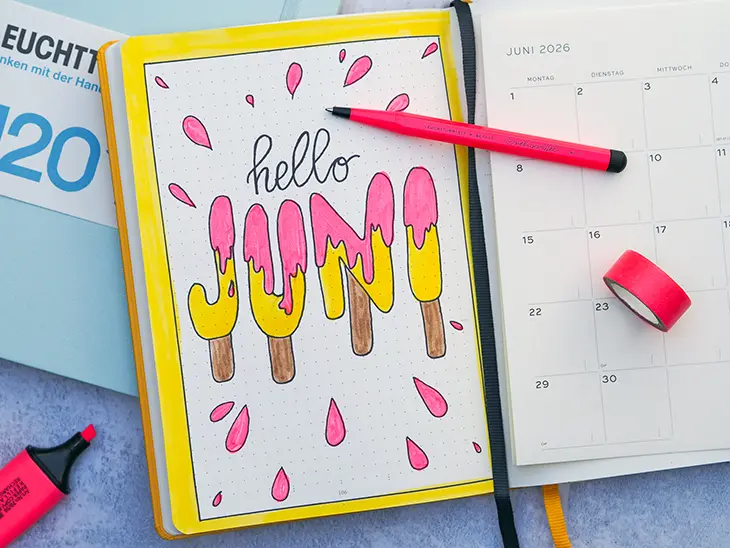 EUCHTT
nken mit der Han
120
hello
JUNI
106
JUNI 2026
MONTAG
DIENSTAG
MITTWOCH
1
2
3
4
8
10
11
15
16
17
18
22
23
29
30